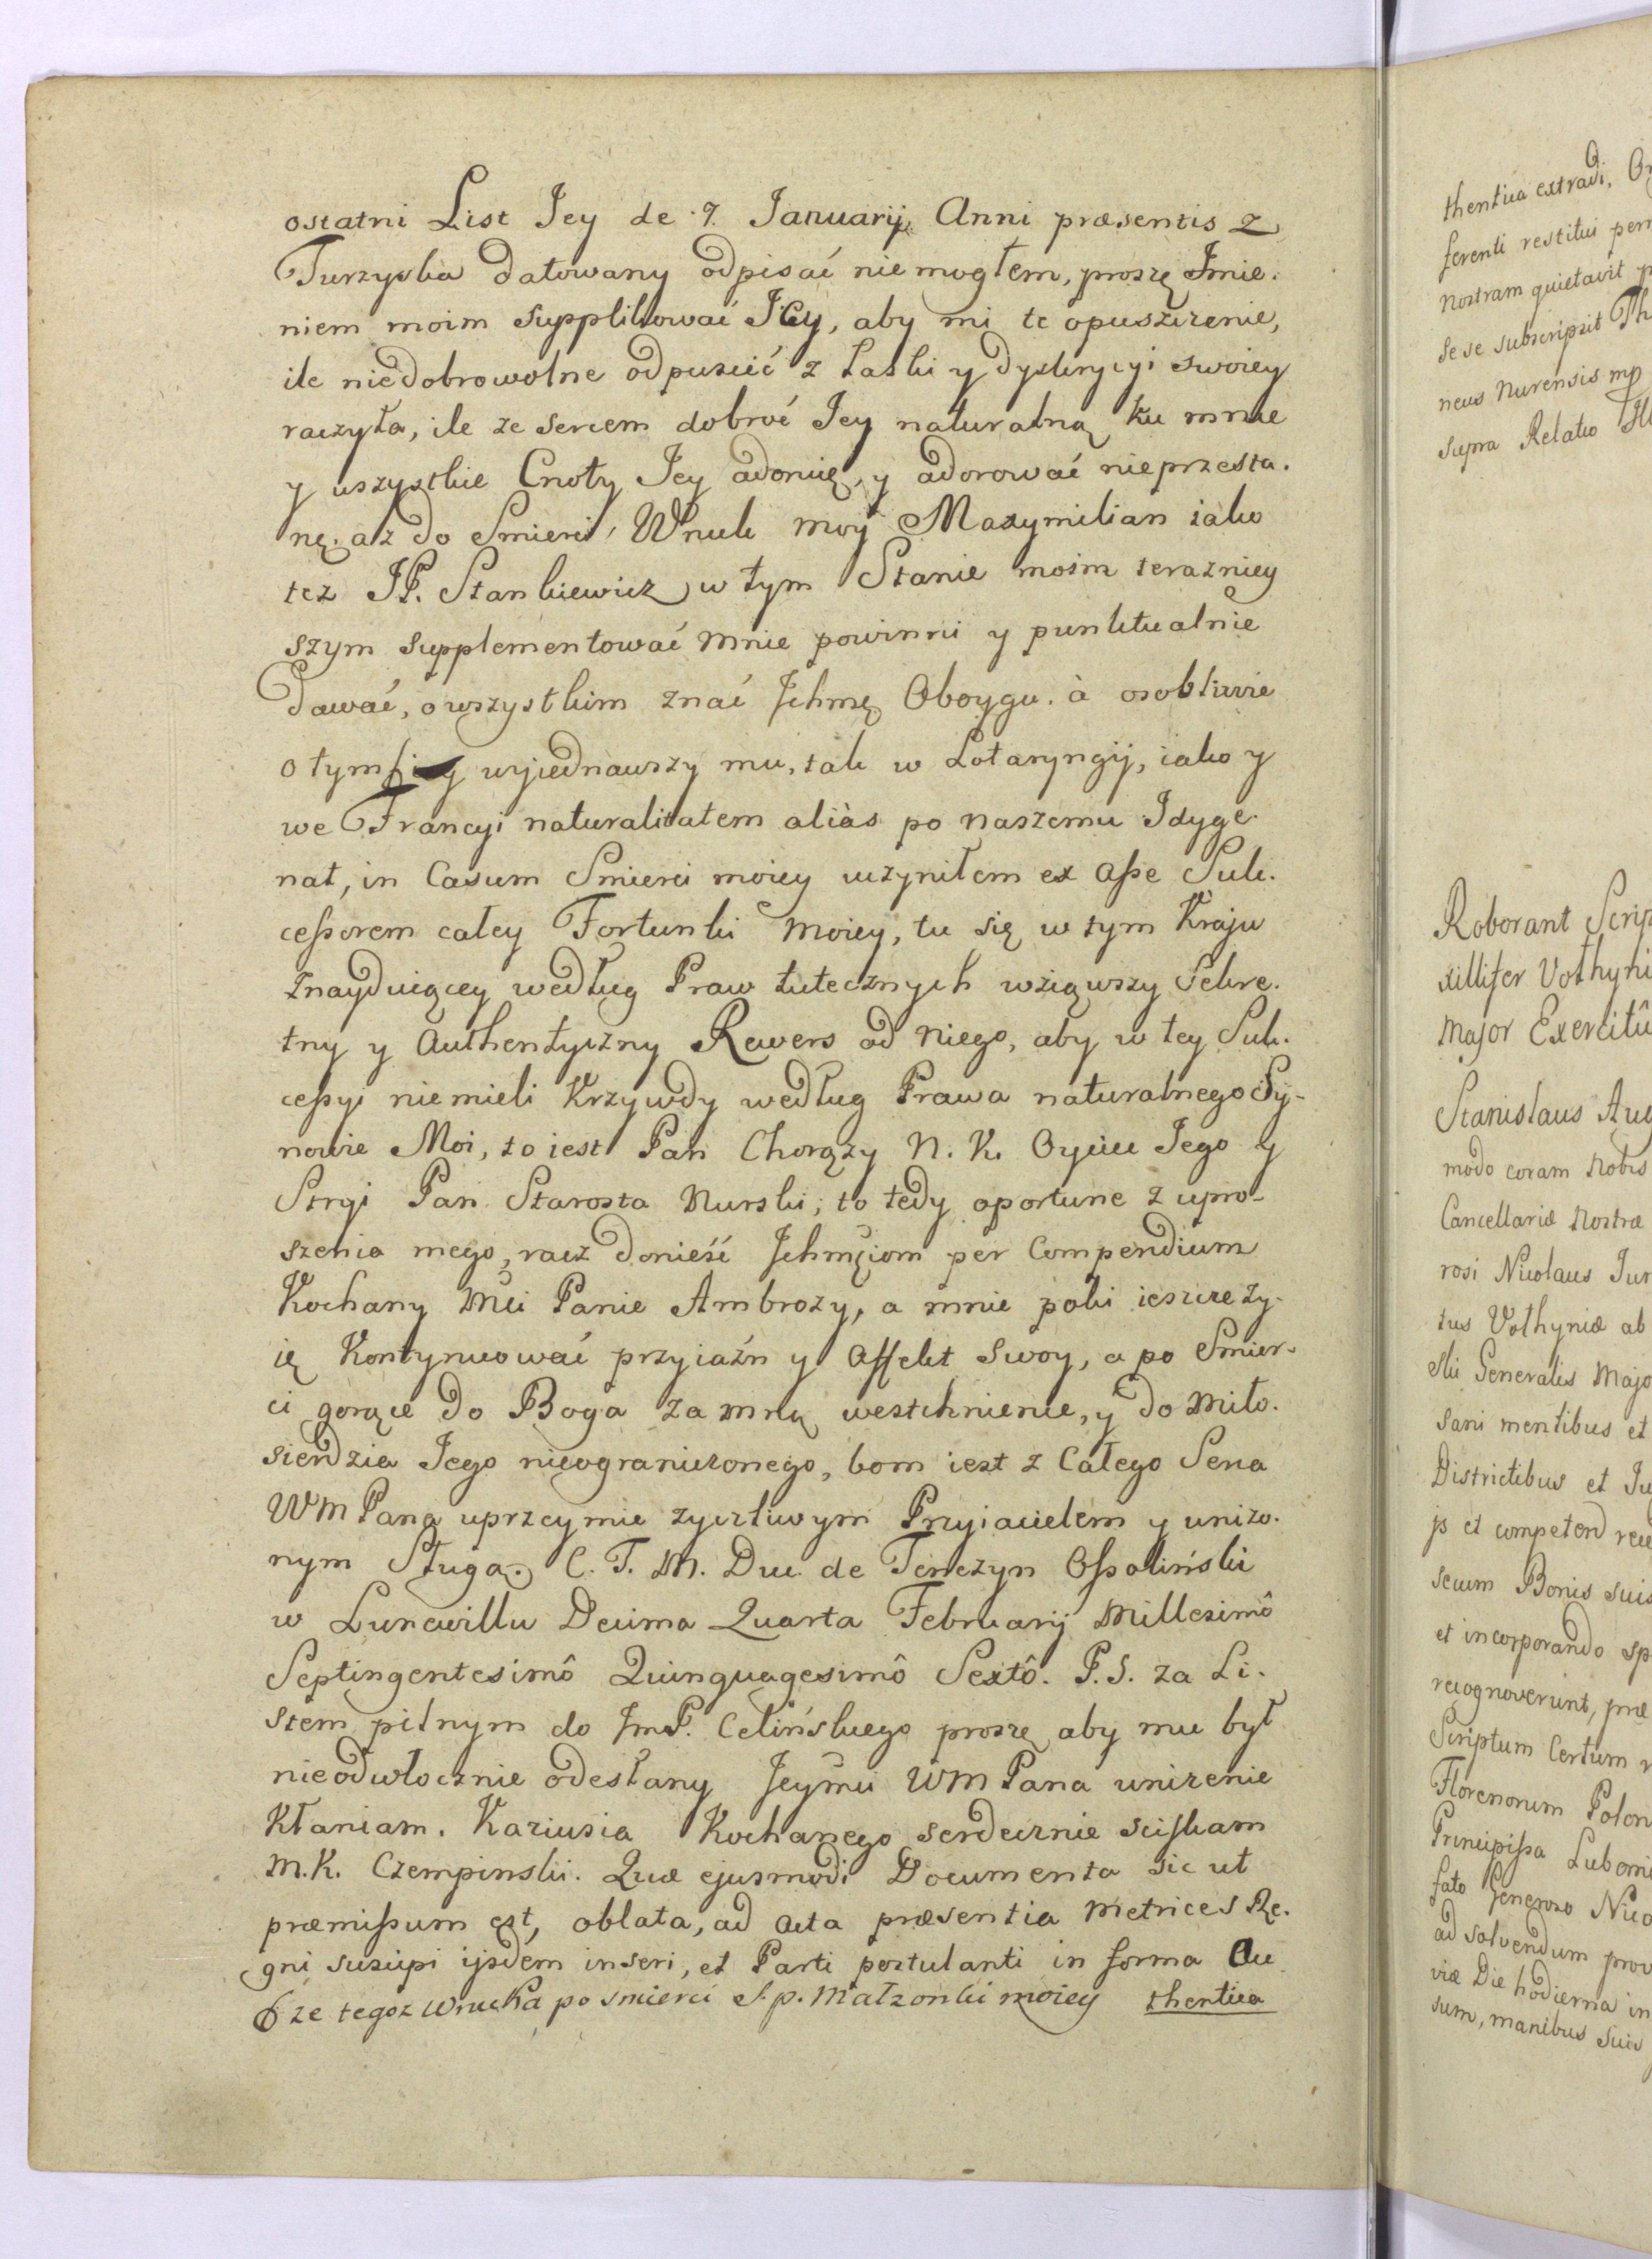 ostatni List Jey de 7. Januarij Anni præsentis z
Turzyska datowany odpisać nie mogłem, proszę Jmie.
niem moim supplikować Jey, aby mi te opuszczenie,
ile niedobrowolne odpuścić z Łaski y dyskrycyi swoiey
raczyła, ile ze sercem dobroć Jey naturalną ku mnie
y wszystkie Cnoty Jey adoruię, y adorować nieprzesta.
nę. aż do Smierci, Wnuk moy Maxymilian iako
tez JP. Stankiewicz w tym Stanie moim terazniey
szym supplementować mnie powinni y punktualnie
dawać, o wszystkim znać Jchmę Oboygu. à osobliwie
o tym wyjednawszy mu, tak w Lotaryngij, iako y
we Francyi naturalitatem aliàs po naszemu Jdyge.
nat, in Casum Smierci moiey uczyniłem ex asse Suk.
cessorem całey Fortunki moiey, tu się w tym Kraju
znayduiącey według Praw tutecznych wziąwszy Sekre.
tny y Authentyczny Rewers od niego, aby w tey Suk.
cessyi niemieli Krzywdy według Prawa naturalnego Sy-
nowie Moi, to iest Pan Chorąży N. K. Oyciec Jego y
Stryi Pan Starosta Nurski; to tedy oportune z upro-
szenia mego, racz donieść Jchmciom per Compendium
Kochany Mci Panie Ambroży, a mnie poki ieszcze ży-
ię Kontynuować przyiaźn y Affekt swoy, a po Smier-
ci gorące do Boga za mną westchnienie, y do Miło.
sierdzia Jego nieograniczonego, bom iest z Całego Serca
WM Pana uprzeymie zyczliwym Przyiacielem y unizo.
nym Sługą. C. T. M. Duc de Tenczyn Ossoliński
w Lunewillu Decima Quarta Februarij Millesimô
Septingentesimô Quinquagesimô Sextô. P.S. za Li.
stem pilnym do JmP. Celińskiego proszę aby mu był
nieodwłocznie odesłany Jeymci WM Pana unizenie
Kłaniam. Kaziusia Kochanego serdecznie sciskam
M.K. Czempinski. Quæ ejusmodi Documenta sic ut
præmissum est, oblata, ad Acta præsentia Metrices Re.
gni suscipi ijsdem inseri, et Parti postulanti in forma Au
ze tegoz Wnuka po smierci S.p. Małzonki moiey thentica
thentica extradi,
ferenti restitui
nostram quietavit
de se subscripsit
neus Nurensis mp
supra Relatio
Roborant
xillifer Volhyni
Major Exercitû
Stanislaus Aug
modo coram Nobis
Cancellariæ Nostræ
rosi Nicolaus Jur
tus Volhyniæ ab
ski Generalis Majo
sani mentibus et
Districtibus et
js et competend
secum Bonis suis
et incorporando
recognoverunt, præ
Scriptum Certum
Florenorum Polon
Principissa Lubomi
fato Generoso Nico
ad solvendum prov
viæ Die hodierna in
sum, manibus suis